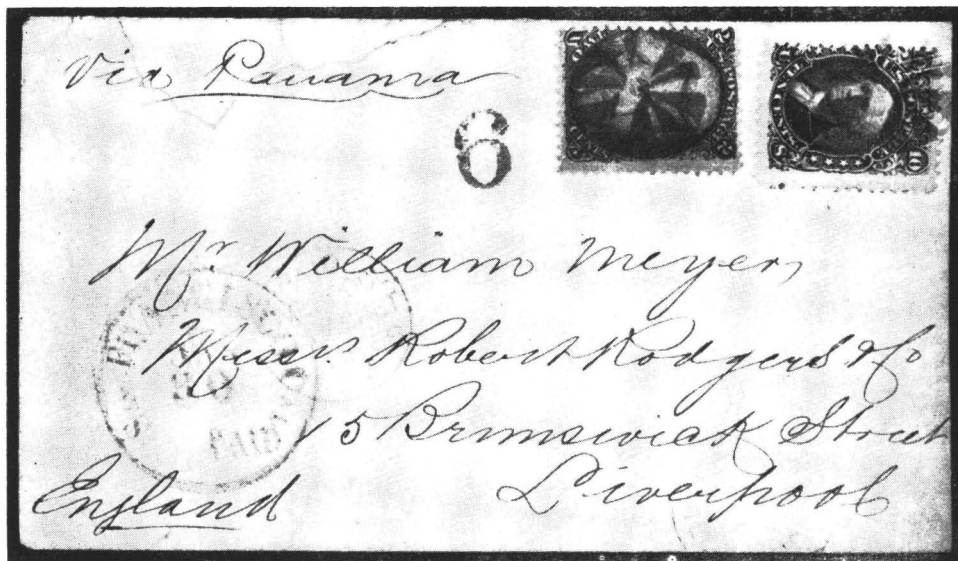 Via Panama
6
Mr. William Meyer,
Messrs. Robert Rodgers & Co
15 Brunswick Street
Liverpool
England
PAID